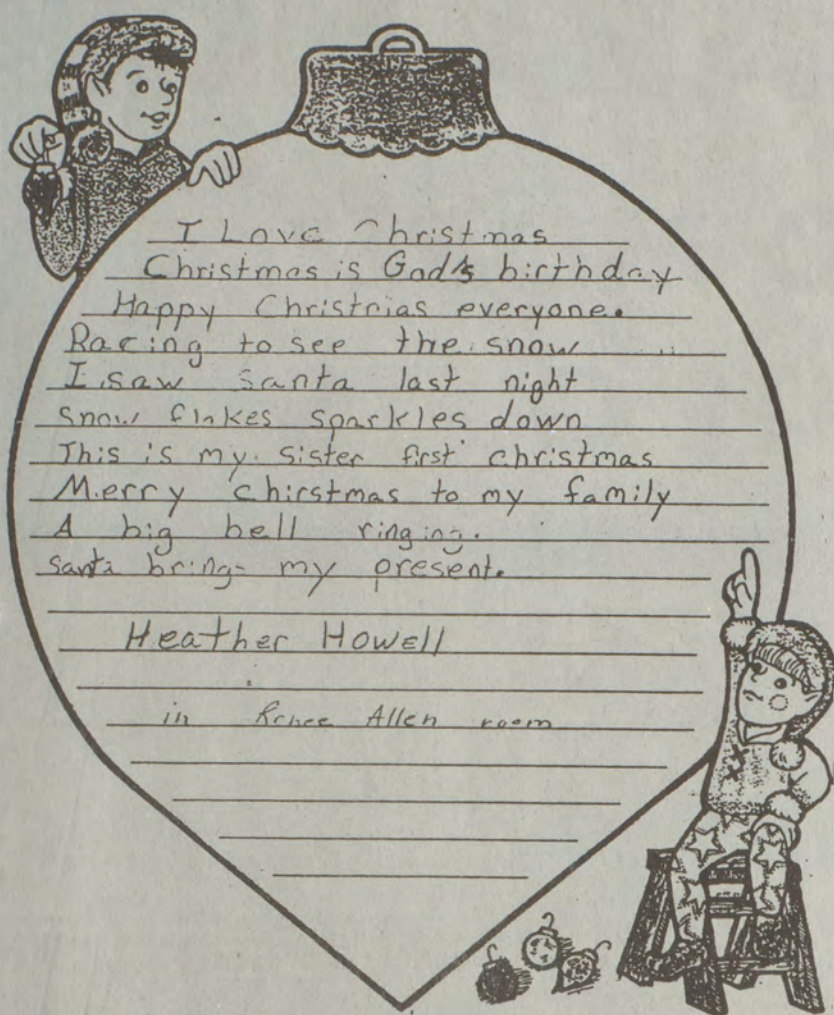 I Love Christmas
Christmas is God's birthday
Happy Christmas everyone.
Racing to see the snow
I saw santa last night
snow flakes sparkles down
This is my sister first christmas
Merry chirstmas to my family
A big bell ringing.
santa brings my present.
Heather Howell
in Renee Allen room